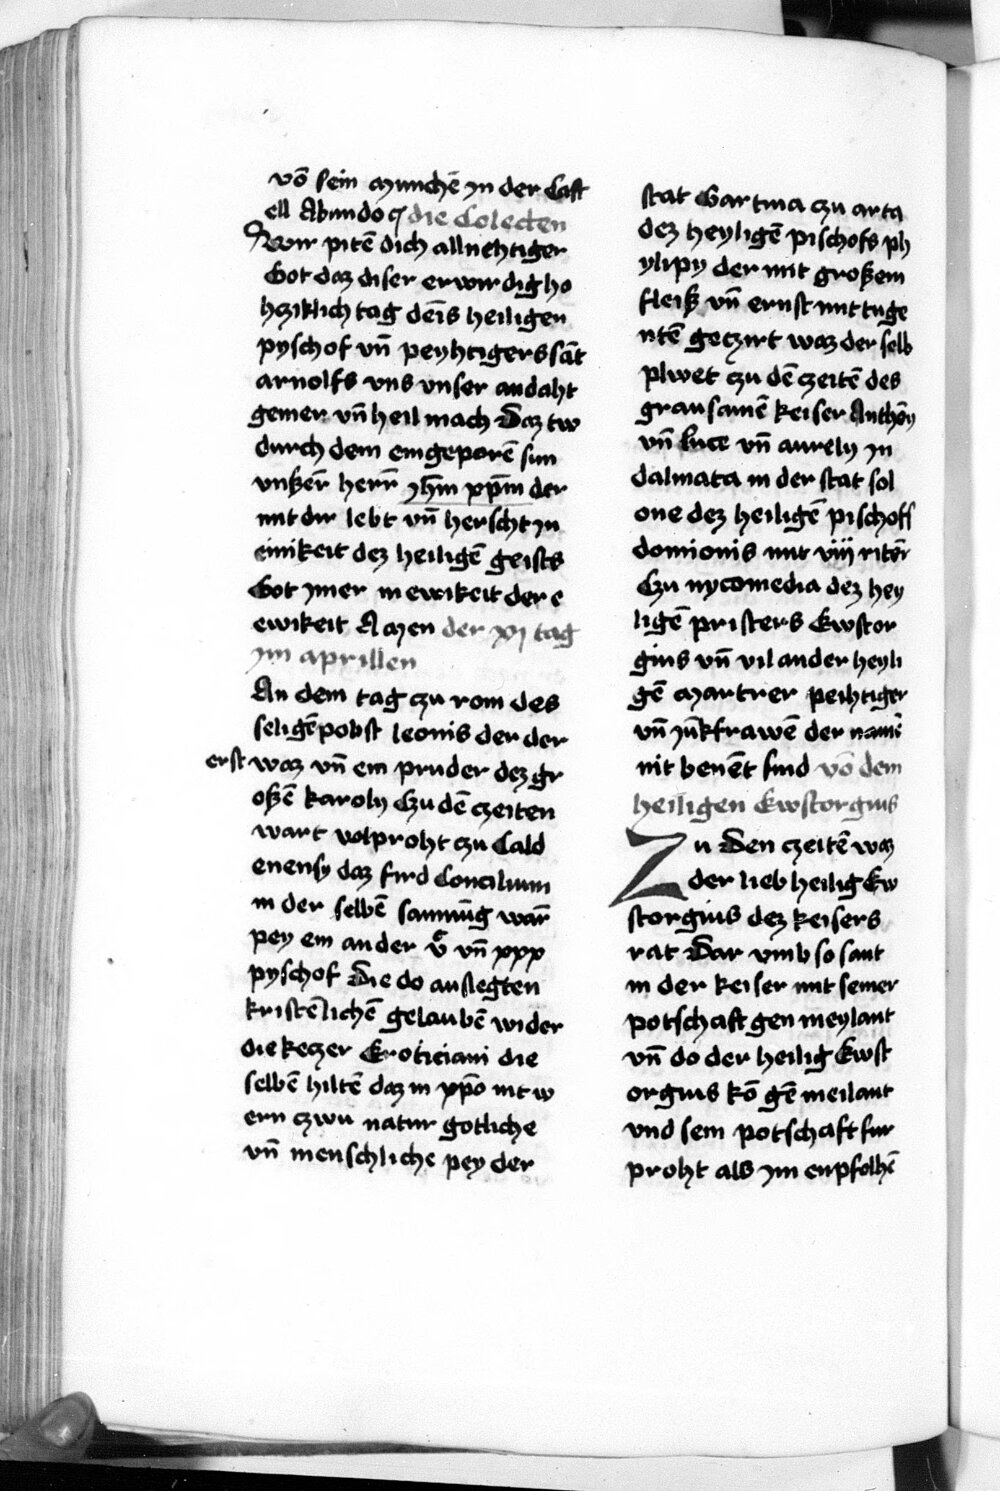 võ sein munchẽ yn der Cast
ell Abundo die Colecten
Wir pitẽ dich allmehtiger
Got daz diser erwirdig ho
hcziklich tag deĩs heiligen
pyschof vñ peyhtigers sãt
arnolfs vns vnser andaht
gemer vñ heil mach Daz tw
durch dem eingeporẽ sun
vnßer̃ herr̃ yhm̃ xp̃m der
mit dir lebt vñ herscht yn
einikeit dez heiligẽ geists
Got ymer in ewikeit der e
ewikeit Amen der xj tag
ym aprillen
An dem tag czu rom des
seligẽ pobst leonis der der
erst waz vñ ein pruder dez gr
oßẽ karoly Czu dẽ czeiten
wart volproht czu Cald
enensy daz fird Concilium
in der selbẽ samnũg war̃
pey ein ander vͨ vñ xxx
pyschof Die do auslegten
kristẽlichẽ gelaubẽ wider
die keczer Eroticiani die
selbẽ hiltẽ daz in xp̃o nit w
ern czwu natur gotliche
vñ menschliche pey der
stat Gartina czu arta
dez heyligẽ pischofs ph
ylipy der mit großem
fleiß vñ ernst mit tuge
ntẽ geczirt waz der selb
plwet czu dẽ czeitẽ des
grausamẽ keiser Anthõy
vñ luce vñ aurely yn
dalmata in der stat sol
one dez heiligẽ pischoff
domionis mit viij riter̃
Czu nycomedia dez hey
ligẽ pristers Ewstor
gius vñ vil ander heyli
gẽ martrer peihtiger
vñ yũkfrawẽ der namẽ
nit benẽt sind võ dem
heiligen Ewstorgius
Zu Den czeitẽ waz
der lieb heilig Ew
storgius dez keisers
rat Dar vmb so sant
in der keiser mit seiner
potschaft gen meylant
vñ do der heilig Ewst
orgius kõ gẽ meilant
vnd sein potschaft fur
proht als ym enpfolhẽ